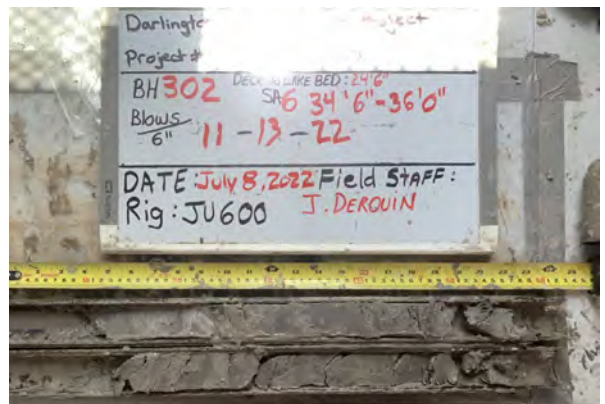 Darlington
Project #
BH 302 DECK TO LAKE BED: 24'6"
SA6 34'6"-36'0"
Blows/6" 11-13-22
DATE: July 8, 2022 Field STAFF:
Rig: JU600 J. DEROUIN